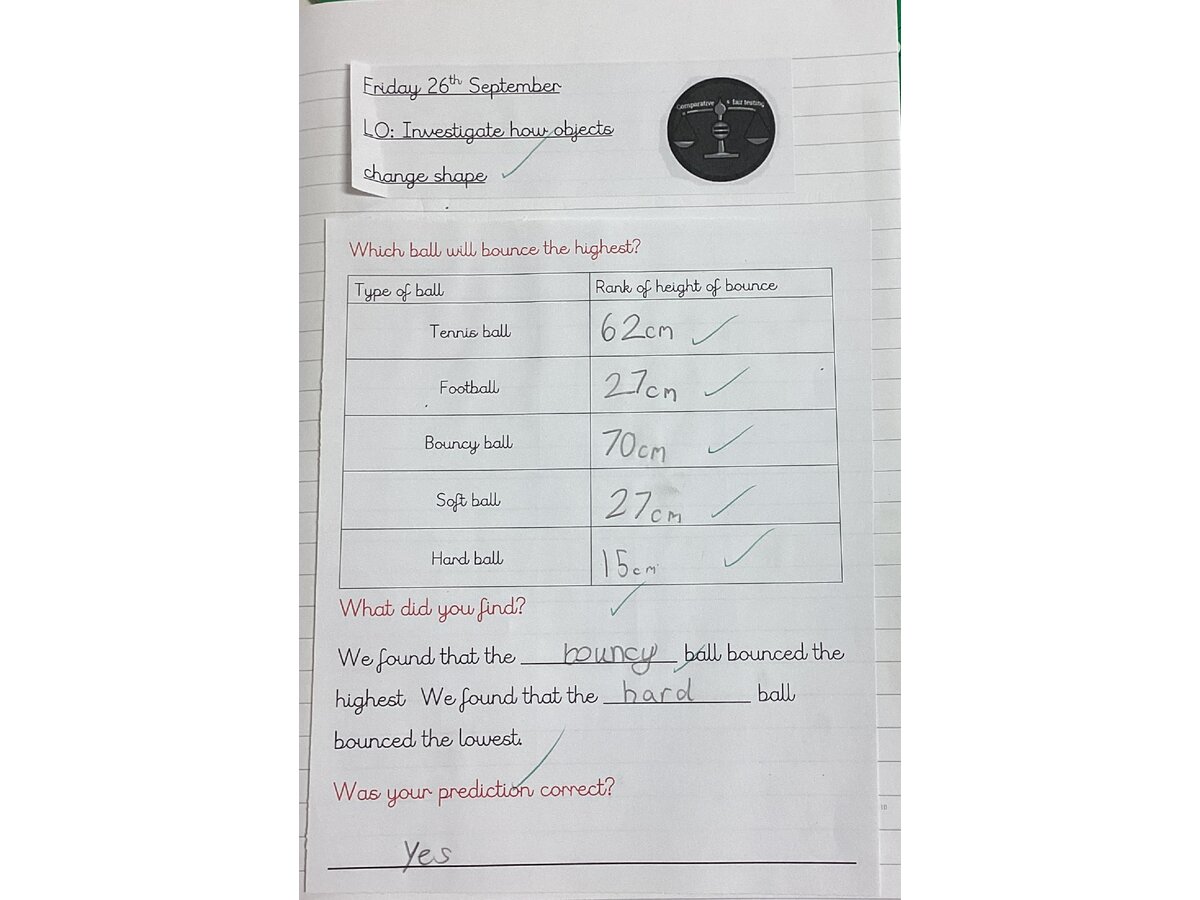 Friday 26th September
Comparative & fair testing
LO: Investigate how objects
change shape
Which ball will bounce the highest?
Type of ball Rank of height of bounce
Tennis ball 62cm
Football 27cm
Bouncy ball 70cm
Soft ball 27cm
Hard ball 15cm
What did you find?
We found that the bouncy ball bounced the
highest We found that the hard ball
bounced the lowest.
Was your prediction correct?
Yes